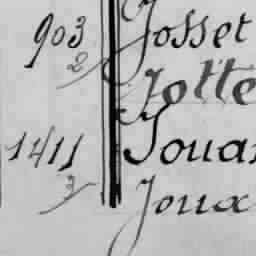 903 Josset
2 Jotte
1411 Joua
3 Joux